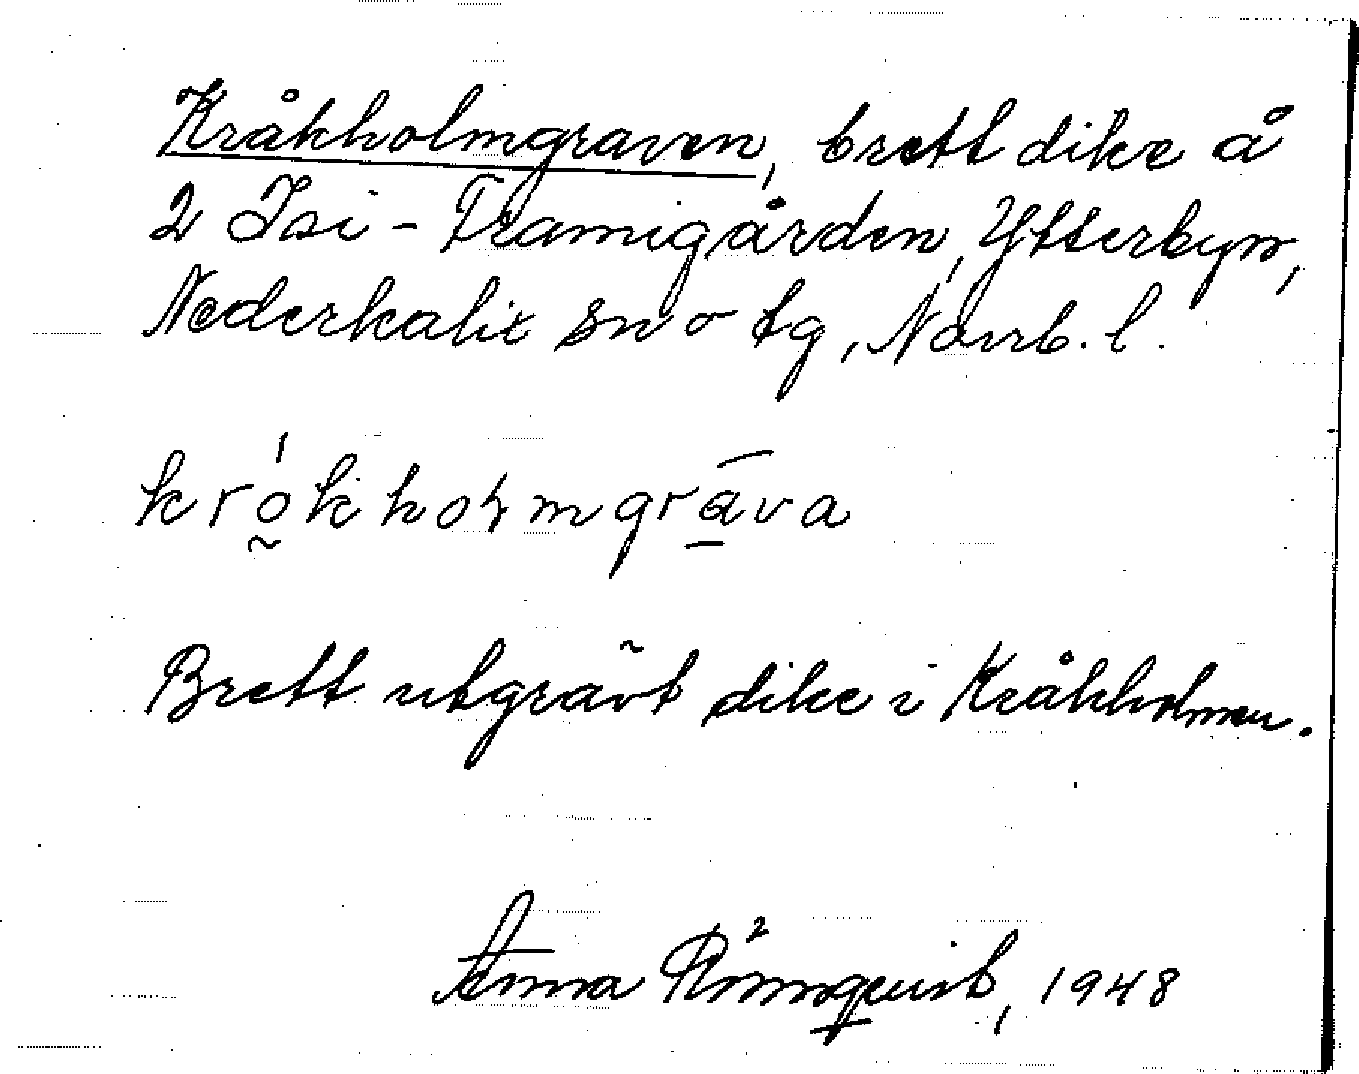 Kråkholmgraven, brett dike å
2 Isi-Framigården, Ytterbyn,
Nederkalix sn o tg, Norrb. l.
krå̰kholmgrāva
Brett utgrävt dike i Kråkholmen.
Anna Rönnquist, 1948